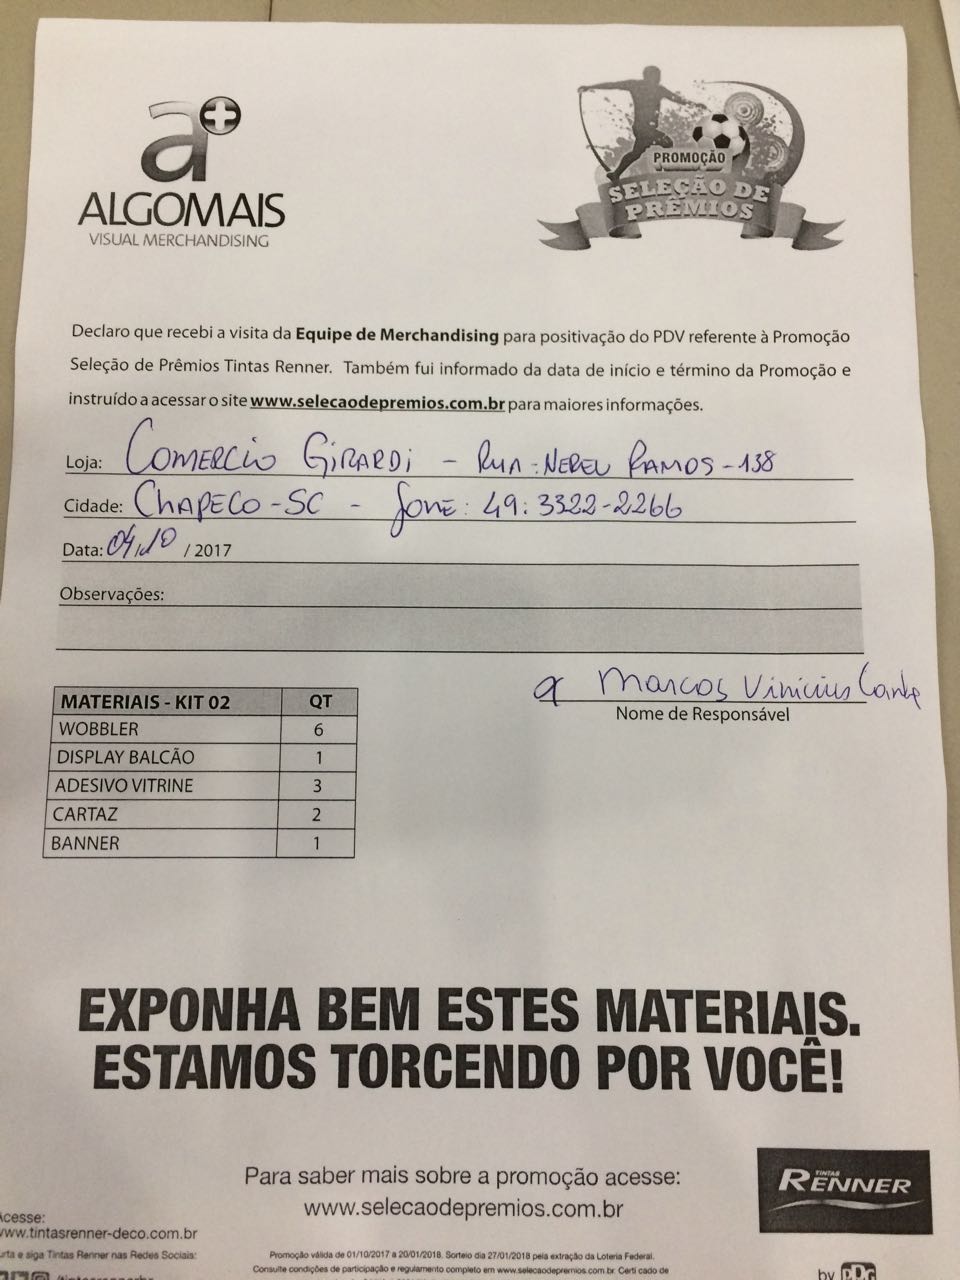 a+
ALGOMAIS
VISUAL MERCHANDISING
PROMOÇÃO
SELEÇÃO DE
PRÊMIOS
Declaro que recebi a visita da Equipe de Merchandising para positivação do PDV referente à Promoção
Seleção de Prêmios Tintas Renner. Também fui informado da data de início e término da Promoção e
instruído a acessar o site www.selecaodepremios.com.br para maiores informações.
Loja: COMERCIO GIRARDI - RUA: NEREU RAMOS - 138
Cidade: CHAPECO - SC - fone: 49: 3322-2266
Data: 04/10 / 2017
Observações:
Marcos Vinicius
Nome de Responsável
MATERIAIS - KIT 02 QT
WOBBLER 6
DISPLAY BALCÃO 1
ADESIVO VITRINE 3
CARTAZ 2
BANNER 1
EXPONHA BEM ESTES MATERIAIS.
ESTAMOS TORCENDO POR VOCÊ!
Para saber mais sobre a promoção acesse:
www.selecaodepremios.com.br
TINTAS
RENNER
Acesse:
www.tintasrenner-deco.com.br
urta e siga Tintas Renner nas Redes Sociais:
Promoção válida de 01/10/2017 a 20/01/2018. Sorteio dia 27/01/2018 pela extração da Loteria Federal.
Consulte condições de participação e regulamento completo em www.selecaodepremios.com.br. Certi cado de
by PPG